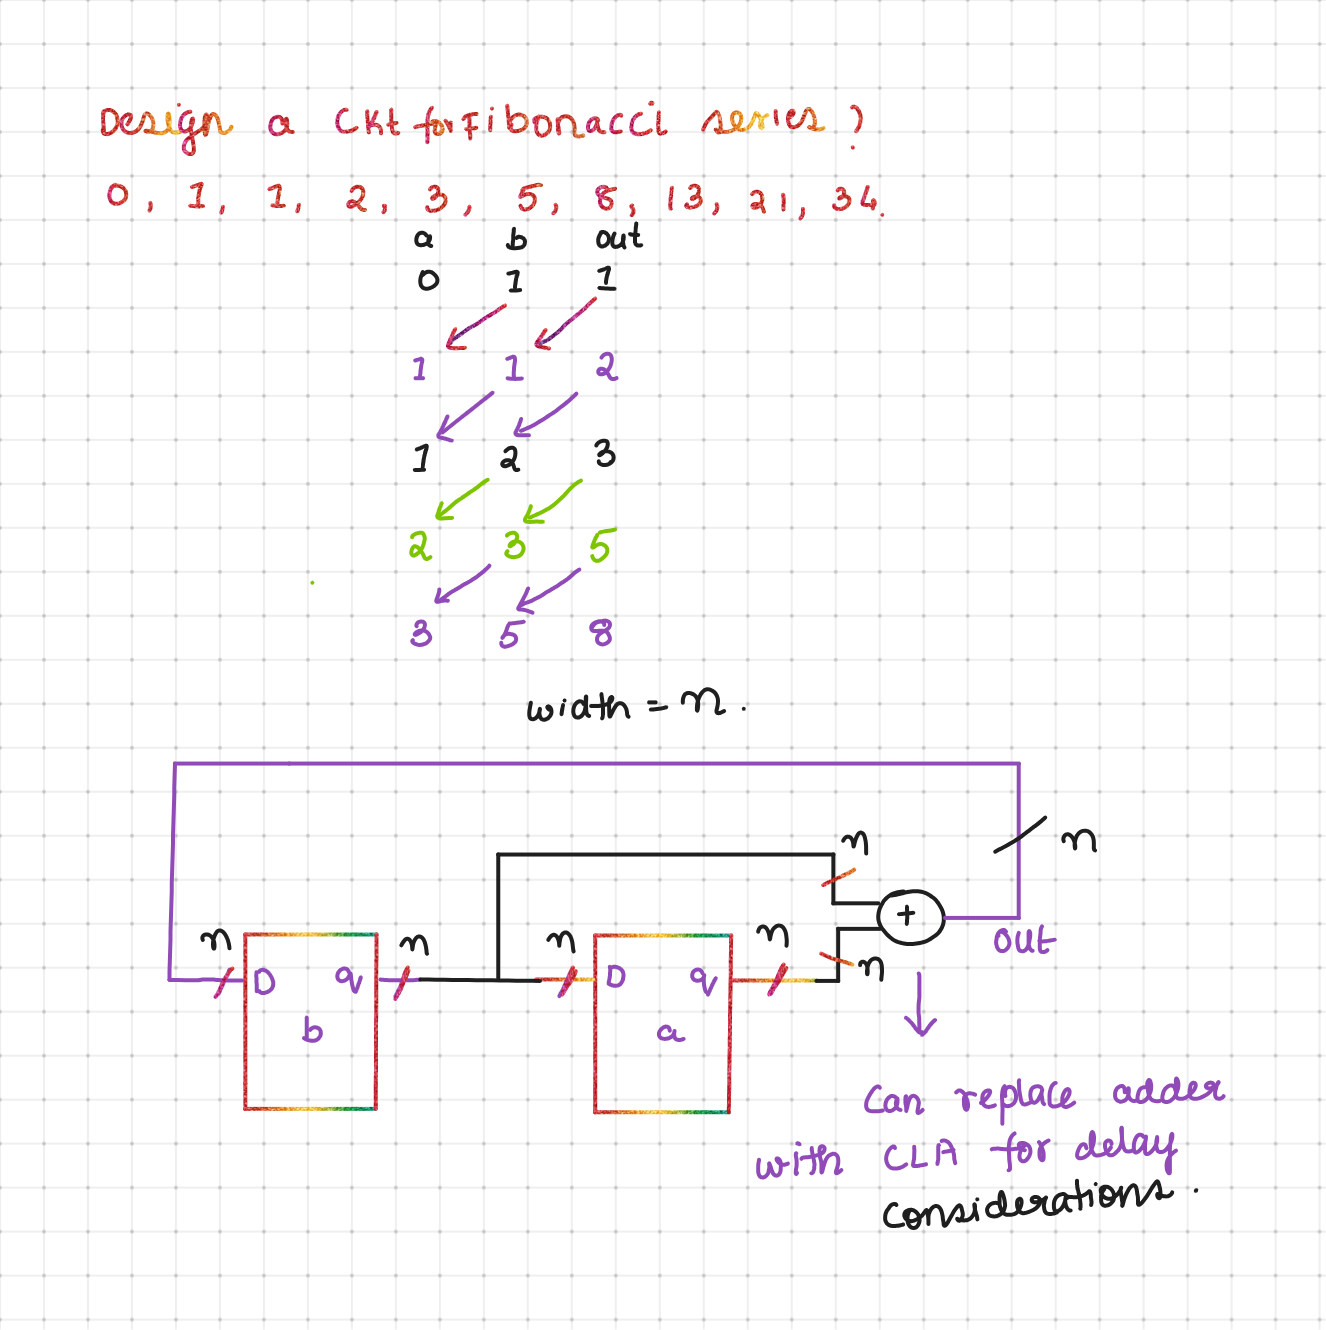 Design a CKt for Fibonacci series ?
0, 1, 1, 2, 3, 5, 8, 13, 21, 34.
a b out
0 1 1
1 1 2
1 2 3
2 3 5
3 5 8
width = n.
n
n
n n n n
+
out
n
D q D q
b a
Can replace adder
with CLA for delay
considerations.